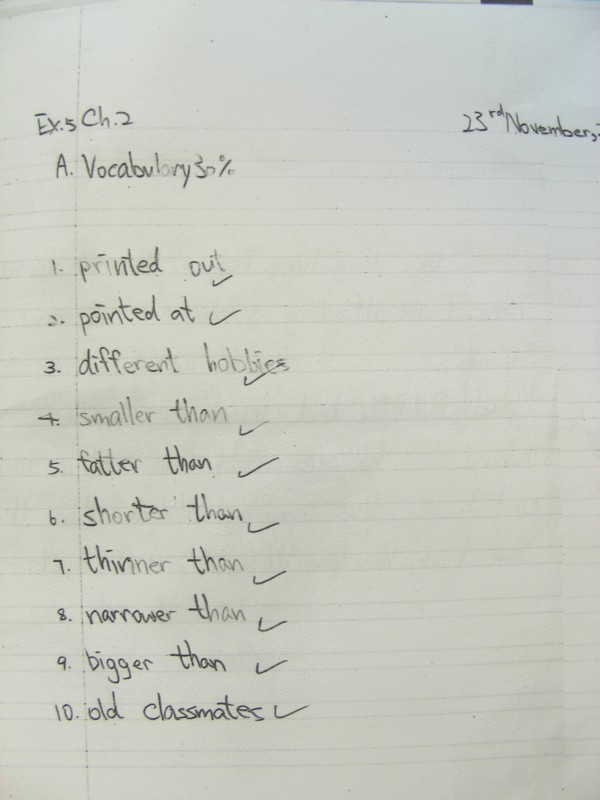 Ex.5 Ch.2 23rd November,
A. Vocabulary 30%
1. printed out
2. pointed at
3. different hobbies
4. smaller than
5. fatter than
6. shorter than
7. thinner than
8. narrower than
9. bigger than
10. old classmates